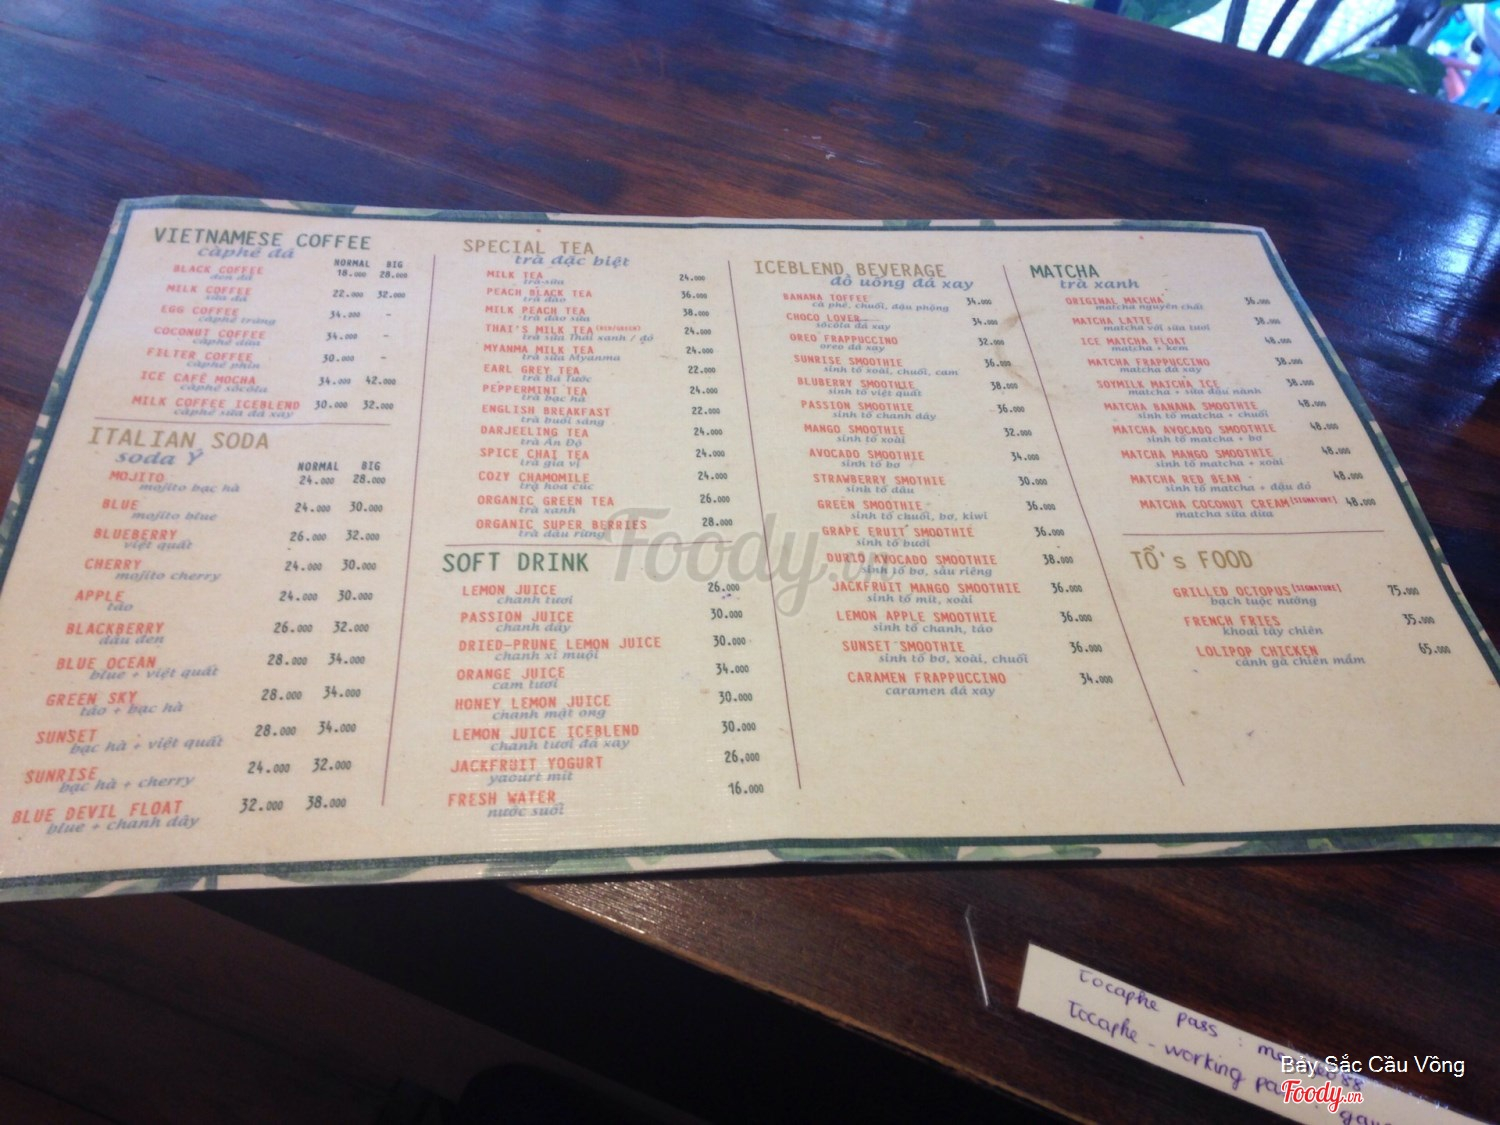 VIETNAMESE COFFEE
càphê đá
NORMAL BIG
BLACK COFFEE 18.000 28.000
đen đá
MILK COFFEE 22.000 32.000
sữa đá
EGG COFFEE 34.000 -
càphê trứng
COCONUT COFFEE 34.000 -
càphê dừa
FILTER COFFEE 30.000 -
càphê phin
ICE CAFÉ MOCHA 34.000 42.000
càphê sôcôla
MILK COFFEE ICEBLEND 30.000 32.000
càphê sữa đá xay
ITALIAN SODA
soda Ý
NORMAL BIG
MOJITO 24.000 28.000
mojito bạc hà
BLUE 24.000 30.000
mojito blue
BLUEBERRY 26.000 32.000
việt quất
CHERRY 24.000 30.000
mojito cherry
APPLE 24.000 30.000
táo
BLACKBERRY 26.000 32.000
dâu đen
BLUE OCEAN 28.000 34.000
blue + việt quất
GREEN SKY 28.000 34.000
táo + bạc hà
SUNSET 28.000 34.000
bạc hà + việt quất
SUNRISE 24.000 32.000
bạc hà + cherry
BLUE DEVIL FLOAT 32.000 38.000
blue + chanh dây
SPECIAL TEA
trà đặc biệt
MILK TEA 24.000
trà sữa
PEACH BLACK TEA 36.000
trà đào
MILK PEACH TEA 38.000
trà đào sữa
THAI'S MILK TEA (RED/GREEN) 24.000
trà sữa Thái xanh / đỏ
MYANMA MILK TEA 24.000
trà sữa Myanma
EARL GREY TEA 22.000
trà Bá Tước
PEPPERMINT TEA 24.000
trà bạc hà
ENGLISH BREAKFAST 22.000
trà buổi sáng
DARJEELING TEA 24.000
trà Ấn Độ
SPICE CHAI TEA 24.000
trà gia vị
COZY CHAMOMILE 24.000
trà hoa cúc
ORGANIC GREEN TEA 26.000
trà xanh
ORGANIC SUPER BERRIES 28.000
trà dâu rừng
SOFT DRINK
LEMON JUICE 26.000
chanh tươi
PASSION JUICE 30.000
chanh dây
DRIED-PRUNE LEMON JUICE 30.000
chanh xí muội
ORANGE JUICE 34.000
cam tươi
HONEY LEMON JUICE 30.000
chanh mật ong
LEMON JUICE ICEBLEND 30.000
chanh tươi đá xay
JACKFRUIT YOGURT 26.000
yaourt mít
FRESH WATER 16.000
nước suối
ICEBLEND BEVERAGE
đồ uống đá xay
BANANA TOFFEE 34.000
cà phê, chuối, đậu phộng
CHOCO LOVER 34.000
sôcôla đá xay
OREO FRAPPUCCINO 32.000
oreo đá xay
SUNRISE SMOOTHIE 36.000
sinh tố xoài, chuối, cam
BLUBERRY SMOOTHIE 38.000
sinh tố việt quất
PASSION SMOOTHIE 36.000
sinh tố chanh dây
MANGO SMOOTHIE 32.000
sinh tố xoài
AVOCADO SMOOTHIE 34.000
sinh tố bơ
STRAWBERRY SMOTHIE 30.000
sinh tố dâu
GREEN SMOOTHIE 36.000
sinh tố chuối, bơ, kiwi
GRAPE FRUIT SMOOTHIE 36.000
sinh tố bưởi
DURIO AVOCADO SMOOTHIE 38.000
sinh tố bơ, sầu riêng
JACKFRUIT MANGO SMOOTHIE 36.000
sinh tố mít, xoài
LEMON APPLE SMOOTHIE 36.000
sinh tố chanh, táo
SUNSET SMOOTHIE 36.000
sinh tố bơ, xoài, chuối
CARAMEN FRAPPUCCINO 34.000
caramen đá xay
MATCHA
trà xanh
ORIGINAL MATCHA 36.000
matcha nguyên chất
MATCHA LATTE 38.000
matcha với sữa tươi
ICE MATCHA FLOAT 48.000
matcha + kem
MATCHA FRAPPUCCINO 38.000
matcha đá xay
SOYMILK MATCHA ICE 38.000
matcha + sữa đậu nành
MATCHA BANANA SMOOTHIE 48.000
sinh tố matcha + chuối
MATCHA AVOCADO SMOOTHIE 48.000
sinh tố matcha + bơ
MATCHA MANGO SMOOTHIE 48.000
sinh tố matcha + xoài
MATCHA RED BEAN 48.000
sinh tố matcha + đậu đỏ
MATCHA COCONUT CREAM [SIGNATURE] 48.000
matcha sữa dừa
TỔ's FOOD
GRILLED OCTOPUS [SIGNATURE] 75.000
bạch tuộc nướng
FRENCH FRIES 35.000
khoai tây chiên
LOLIPOP CHICKEN 65.000
cánh gà chiên mắm
Foody.vn
tocaphe pass :
Tocaphe - working
Bảy Sắc Cầu Vồng
Foody.vn